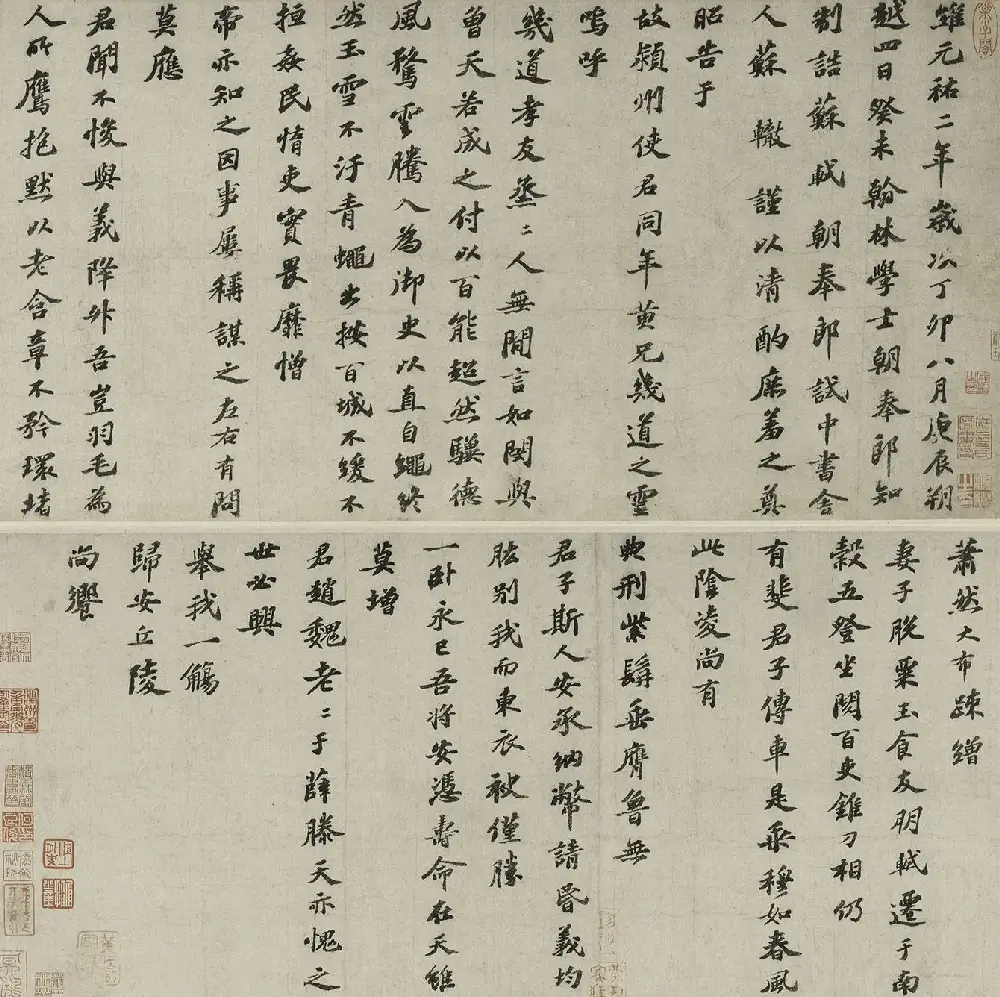 維元祐二年歲次丁卯八月庚辰朔
越四日癸未翰林學士朝奉郎知
制誥蘇軾朝奉郎試中書舍
人蘇轍謹以清酌庶羞之奠
昭告于
故潁州使君同年黄兄幾道之靈
嗚呼
幾道孝友烝〻人無間言如閔與
曾天若成之付以百能超然驥德
風騖雲騰入為御史以直自繩終
然玉雪不汙青蠅出按百城不緩不
拒姦民惰吏實畏靡憎
帝亦知之因事屢稱謀之左右有問
莫應
君聞不悛與義降升吾豈羽毛為
人所鷹抱默以老含章不矜環堵
蕭然大布疎繒
妻子脫粟玉食友朋軾遷于南
穀五登坐閱百吏錐刀相仍
有斐君子傳車是乘穆如春風
此陰凌尚有
典刑紫髯垂膺魯無
君子斯人安承納幣請昏義均
肱別我而東衣袂僅勝
一卧永已吾將安憑壽命在天雖
莫增
君趙魏老〻于薛滕天亦愧之
世必興
舉我一觴
歸安丘陵
尚饗